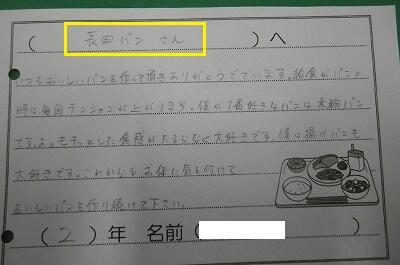 ( 長田パン さん )へ
いつもおいしいパンを作って頂きありがとうございます。給食がパンの
時は毎回テンションが上がります。僕が1番好きなパンは米粉パン
ですよ。モチっとした食感がたまらなく大好きです。僕は揚げパンも
大好きです。これからもお体に気を付けて
おいしいパンを作り続けて下さい。
( 2 ) 年 名前 ( )